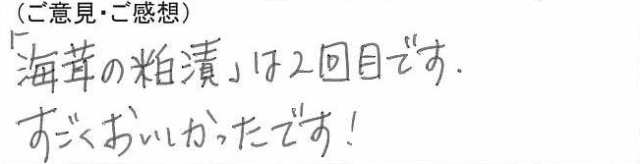 （ご意見・ご感想）
「海茸の粕漬」は2回目です.
すごくおいしかったです！